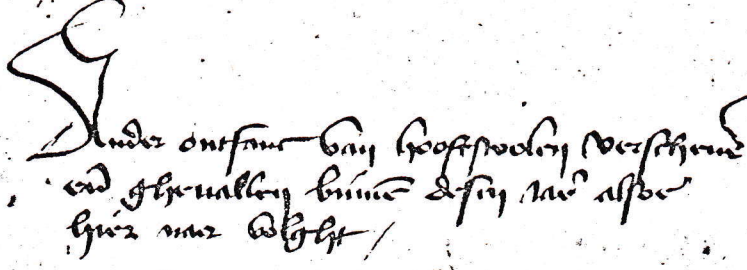 Ander ontfanc van hooftstoelen verschene
end ghevallen binne desen Jaer alsoe
hier naer volght /